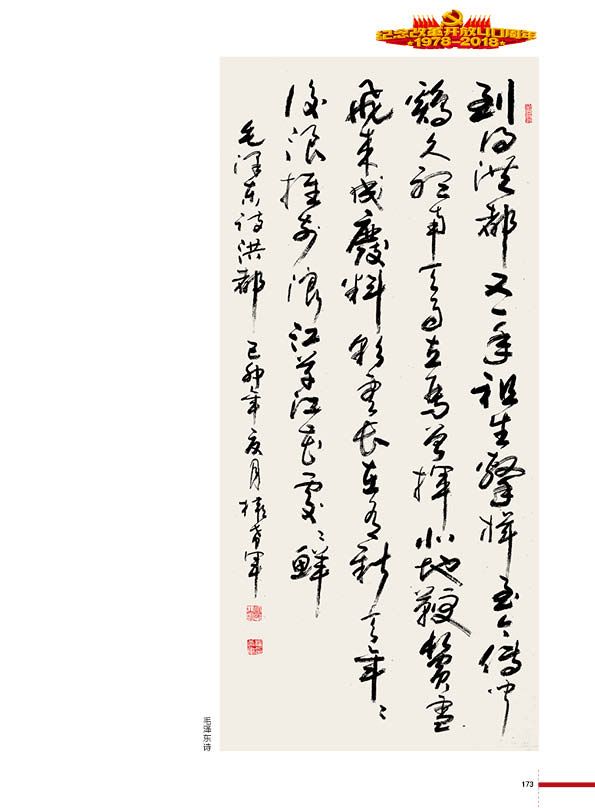 纪念改革开放40周年
1978-2018
到得洪都又一年祖生擊楫至今傳闻
鷄久聽南天雨立馬曾揮北地鞭鬢雪
飛来成廢料彩雲長在有新天年々
後浪推前浪江草江花處々鮮
毛泽东诗洪都 己卯年夏月
毛泽东诗
173